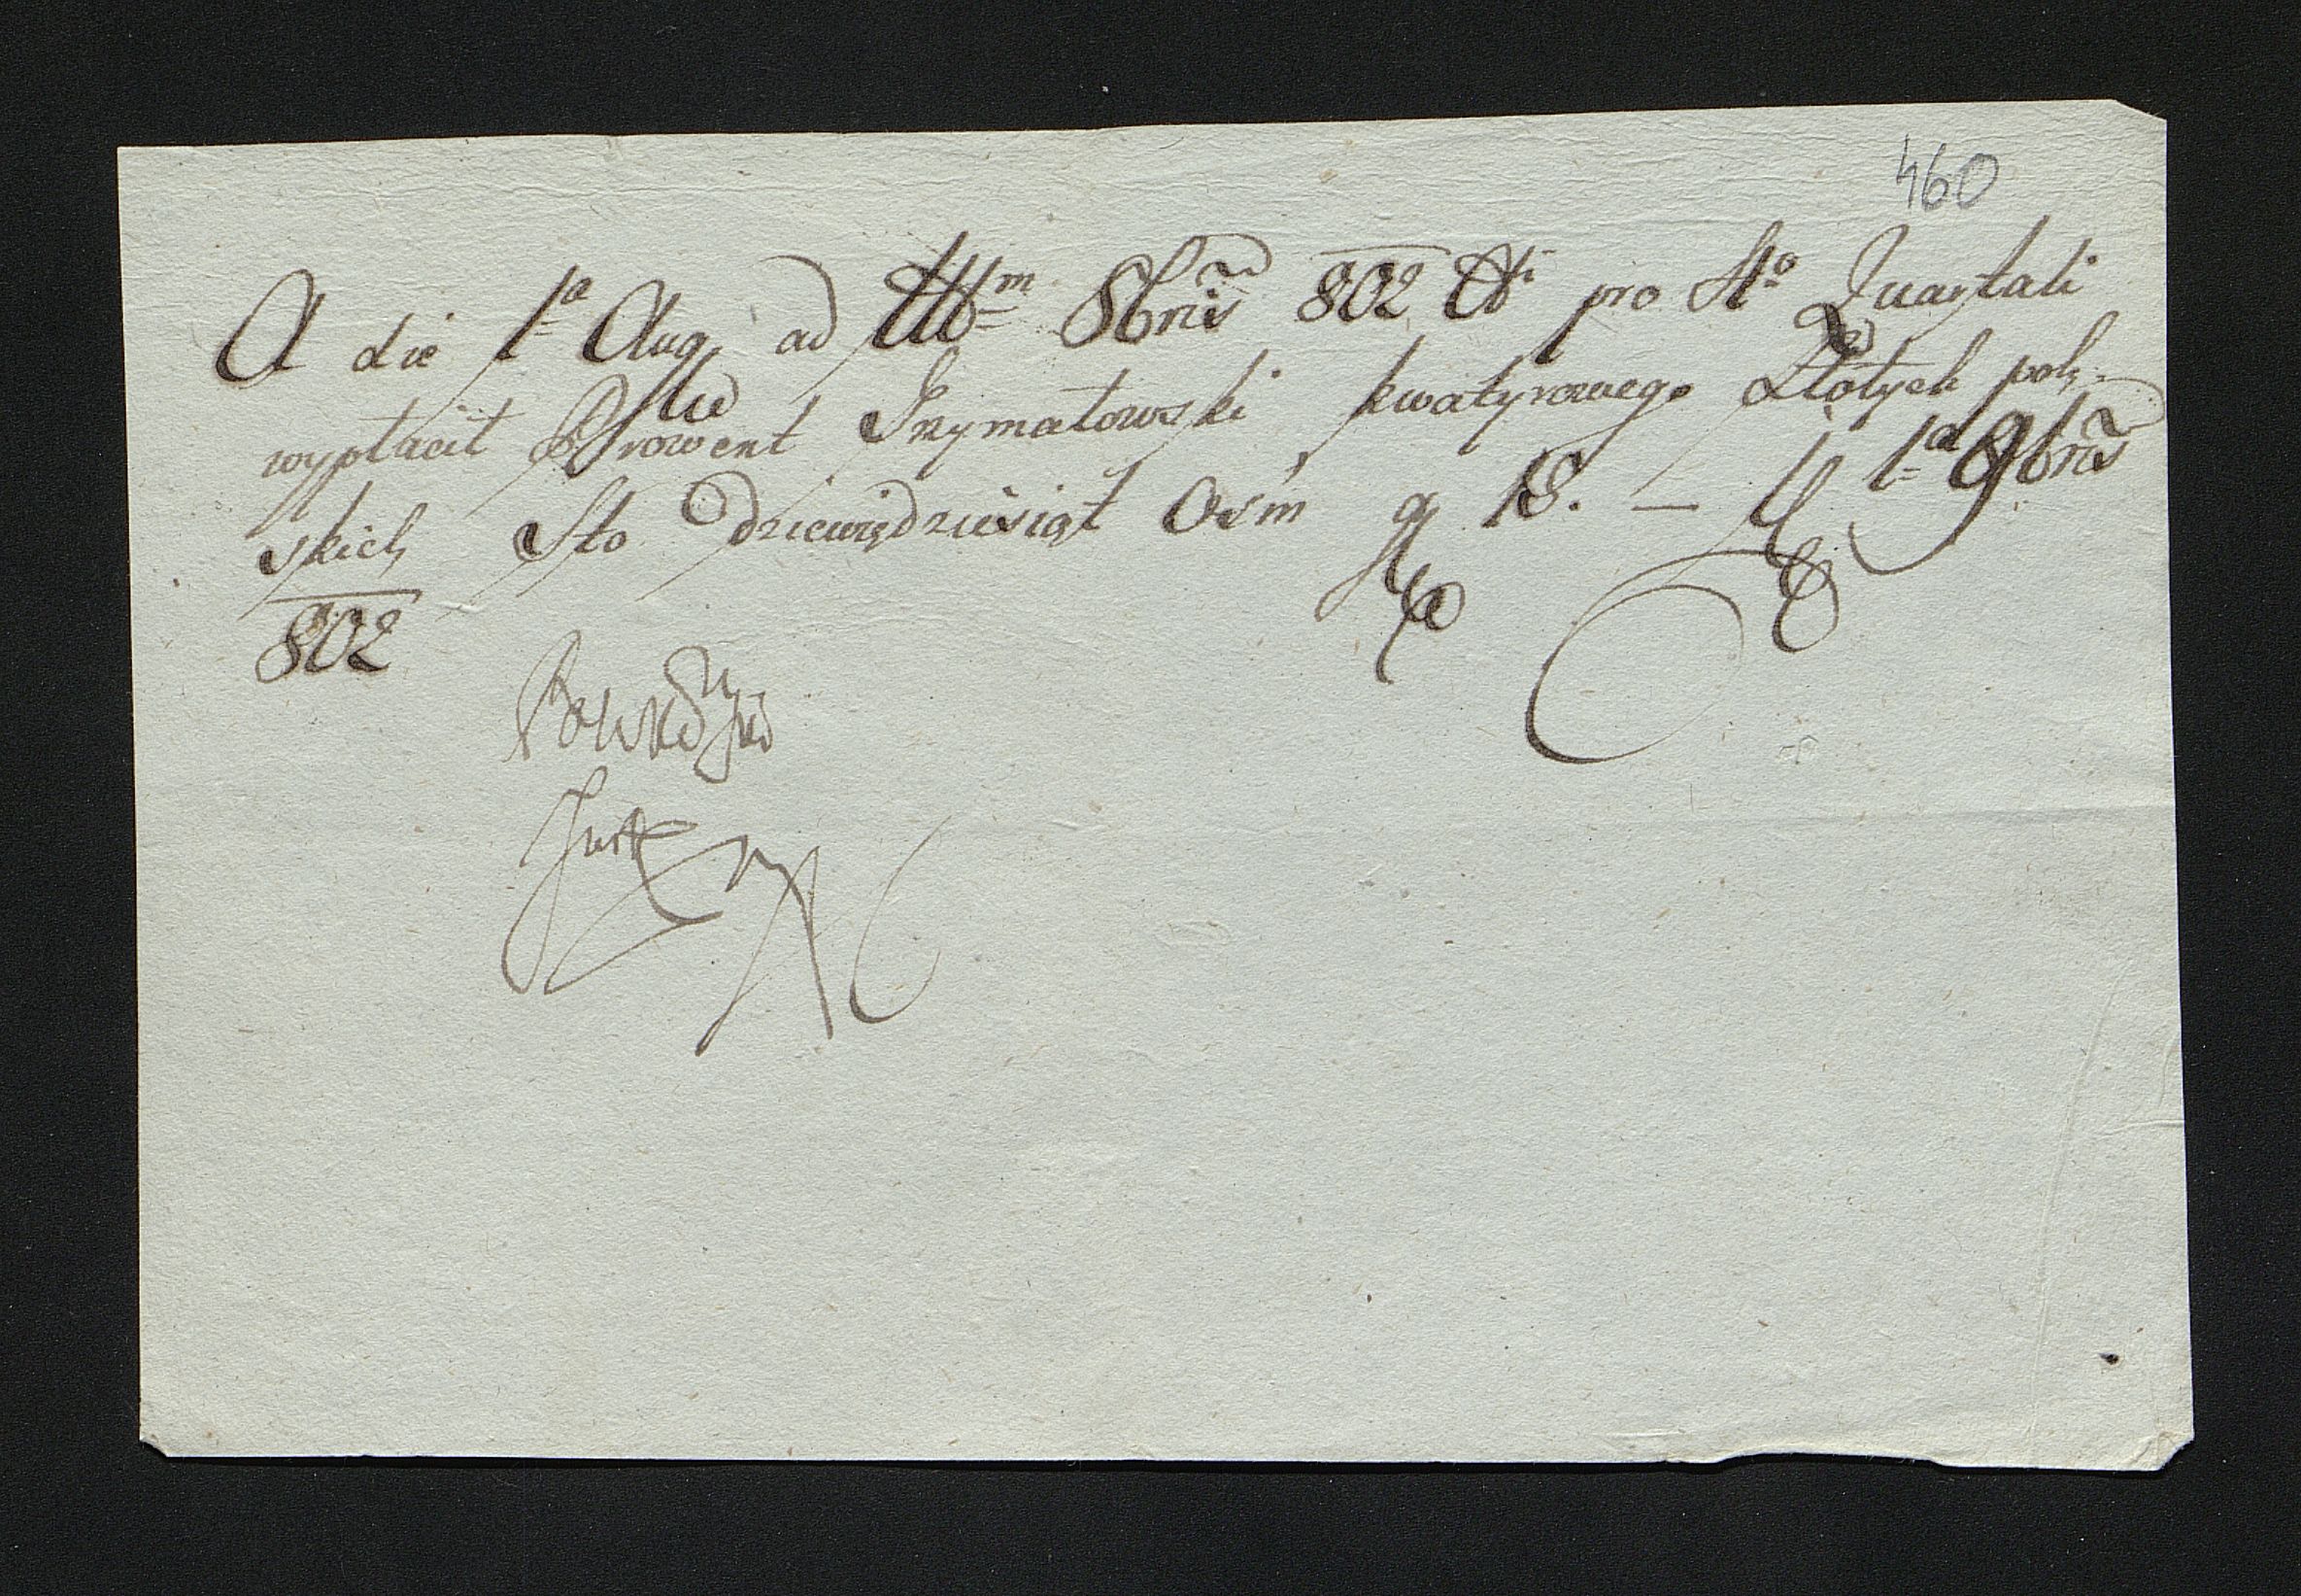 460
A die 1ª Aug ad ultm 8bris 802 Ai pro 4º Quartali
wypłacił Prowent Szymatowski kwatyrowego Złotych pol-
skich Sto Dziewiędziesiąt Ośm g 18. — d 1ª 9bris
802